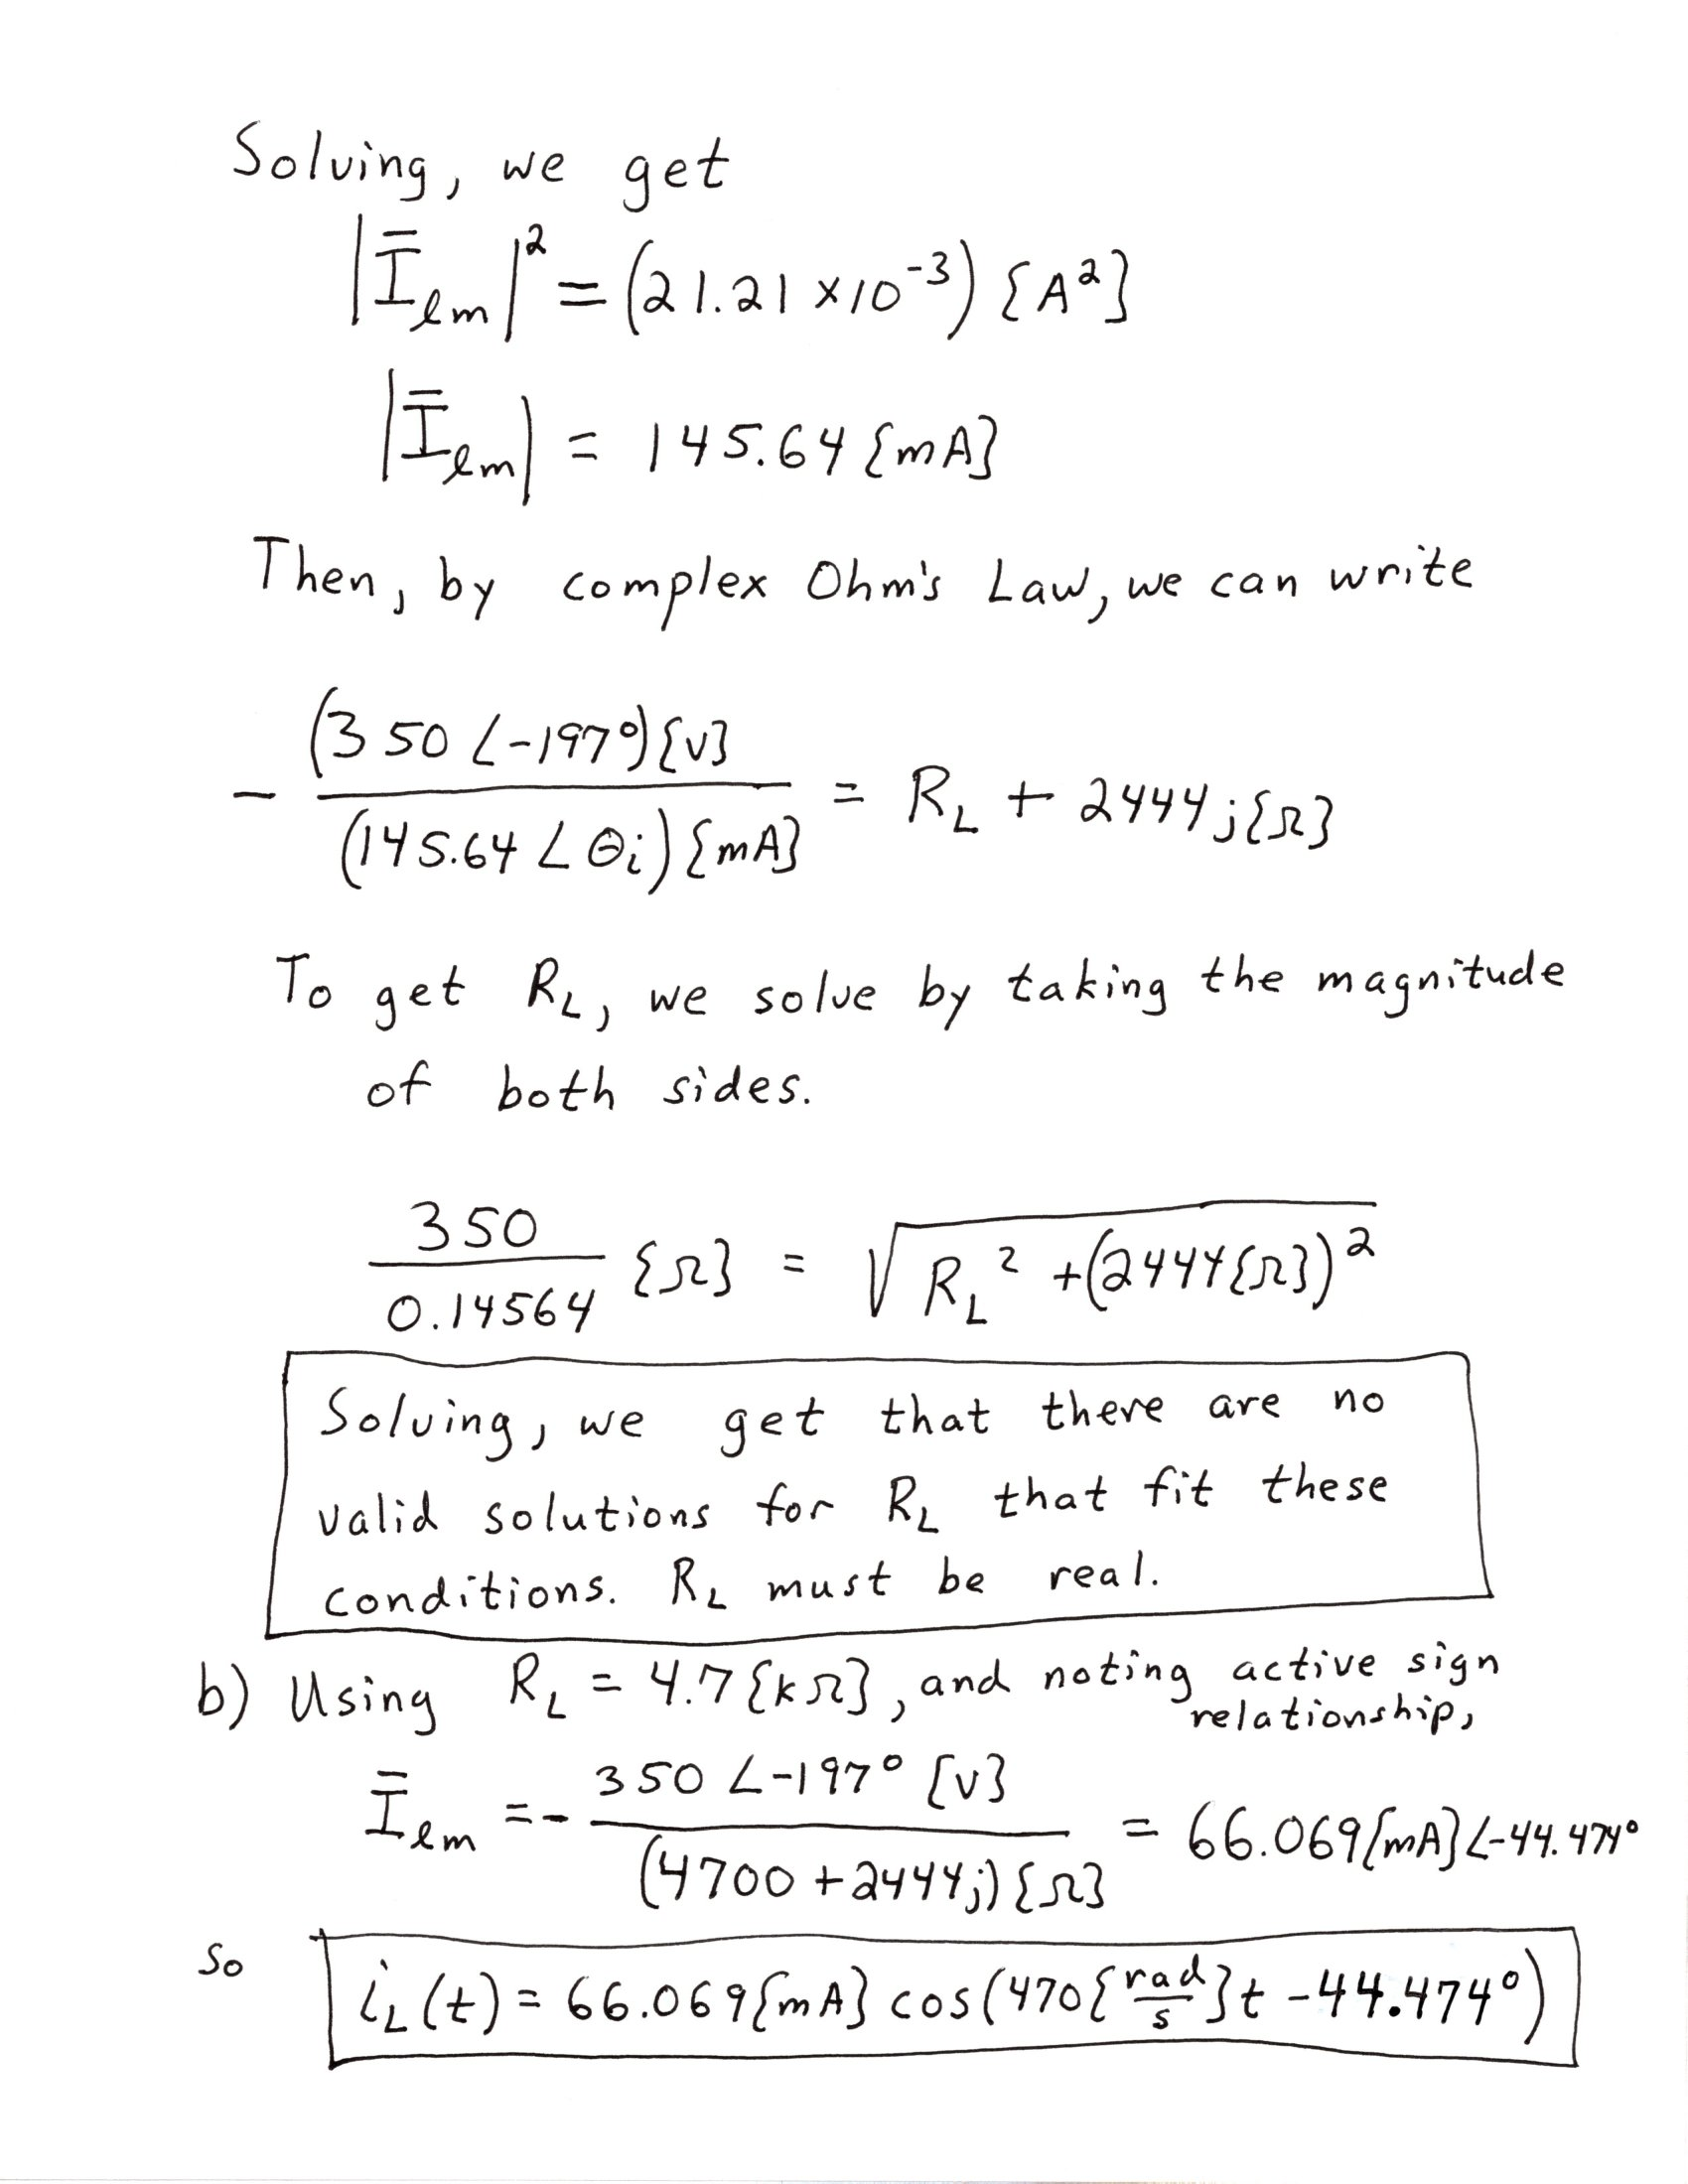 Solving, we get
|Ī̄ₗₘ|² = (21.21 x10⁻³) {A²}
|Ī̄ₗₘ| = 145.64 {mA}
Then, by complex Ohm's Law, we can write
- (350 ∠-197°){V} / (145.64 ∠θi){mA} = R_L + 2444j{Ω}
To get R_L, we solve by taking the magnitude
of both sides.
350 / 0.14564 {Ω} = √(R_L² + (2444{Ω})²)
Solving, we get that there are no
valid solutions for R_L that fit these
conditions. R_L must be real.
b) Using R_L = 4.7{kΩ}, and noting active sign
relationship,
Ī̄ₗₘ = - 350 ∠-197° {V} / (4700 + 2444j){Ω} = 66.069{mA}∠-44.474°
So i_L(t) = 66.069{mA} cos(470{rad/s}t - 44.474°)